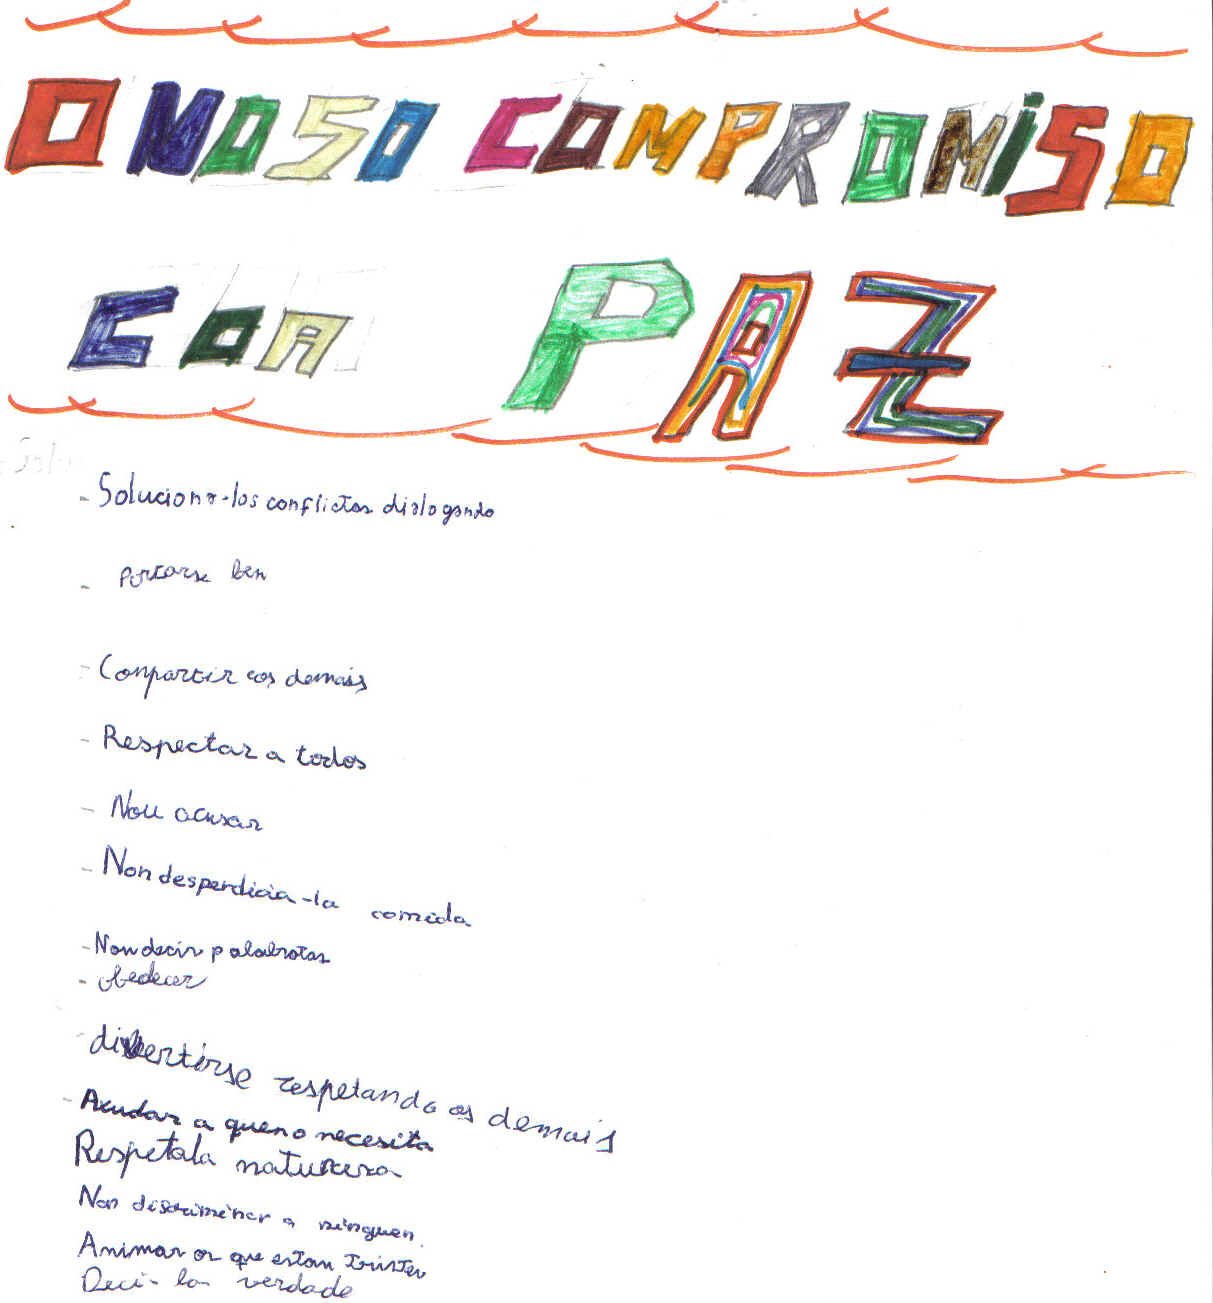 O NOSO COMPROMiSO
COA PAZ
- Soluciona-los conflictos dialogando
- Portarse ben
- Conpartir cos demais
- Respectar a todos
- Non acusar
- Non desperdicia-la comida
- Non decir palabrotas
- obedecer
- divertirse respetando os demais
- Axudar a queno necesita
Respetala natureza
Non discriminar a ninguen.
Animar os que estan tristes
Deci-la verdade